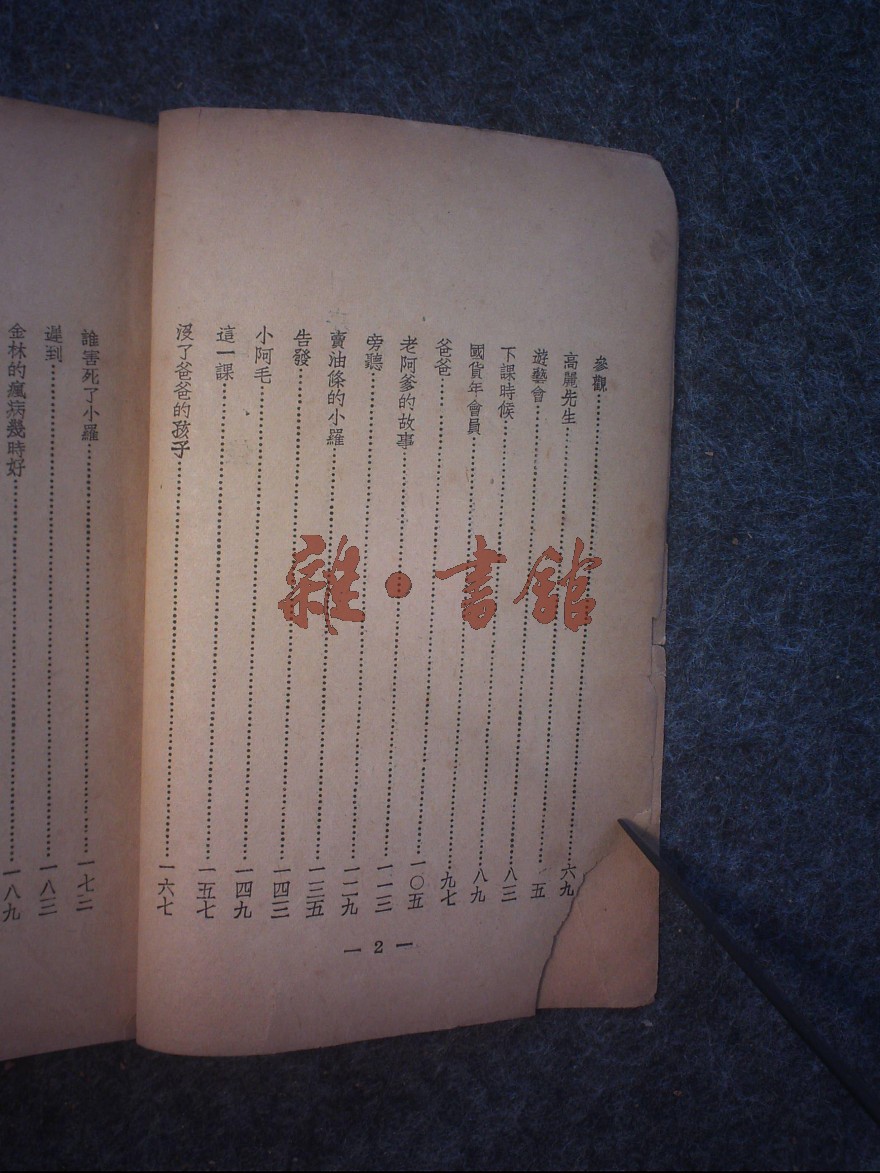 參觀……六九
高麗先生……五
遊藝會……八三
下課時候……八九
國貨年會員……九七
爸爸……一〇五
老阿爹的故事……一一三
旁聽……一二九
賣油條的小羅……一三五
告發……一四三
小阿毛……一四九
這一課……一五七
沒了爸爸的孩子……一六七
— 2 —
誰害死了小羅……一七二
遲到……一八三
金林的瘋病幾時好……一八九
雜·書館